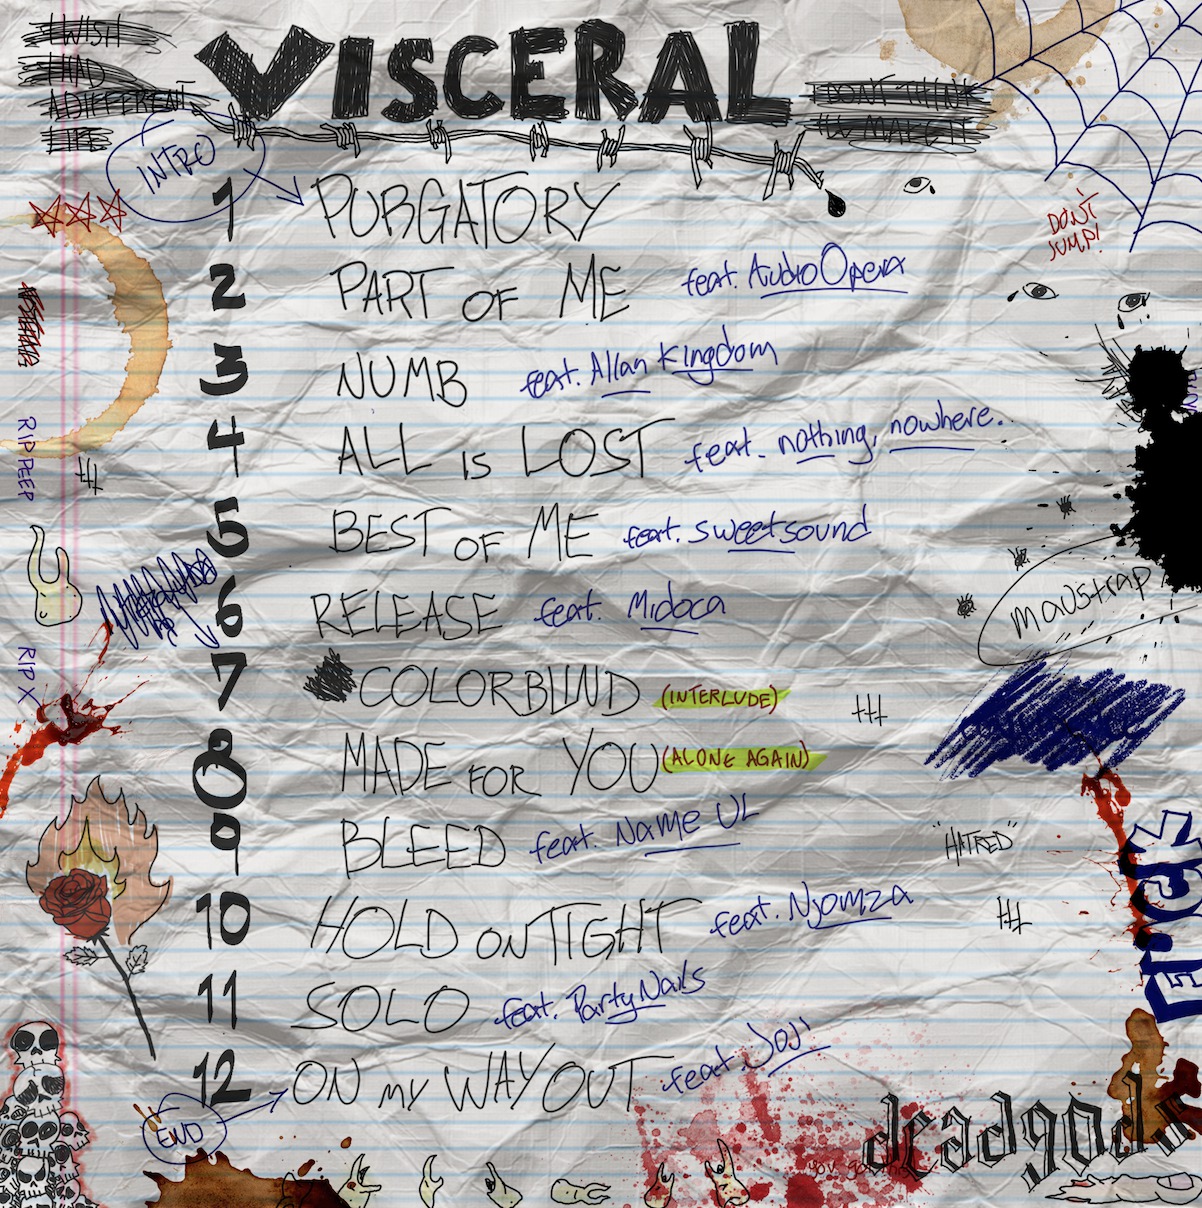 I WISH
I HAD
A DIFFERENT
LIFE
VISCERAL
DON'T THINK
INTRO
1 PURGATORY
2 PART OF ME feat. AudioOpera
3 NUMB feat. Allan Kingdom
4 ALL IS LOST feat. nothing, nowhere.
5 BEST OF ME feat. sweetsound
6 RELEASE feat. Midoca
7 COLORBLIND (INTERLUDE)
8 MADE FOR YOU (ALONE AGAIN)
9 BLEED feat. Name UL
10 HOLD ON TIGHT feat. Njomza
11 SOLO feat. Party Nails
12 ON MY WAY OUT feat. Joji
END
DON'T
JUMP!
RIP PEEP
RIP X
maustrap
"HATRED"
deadgods